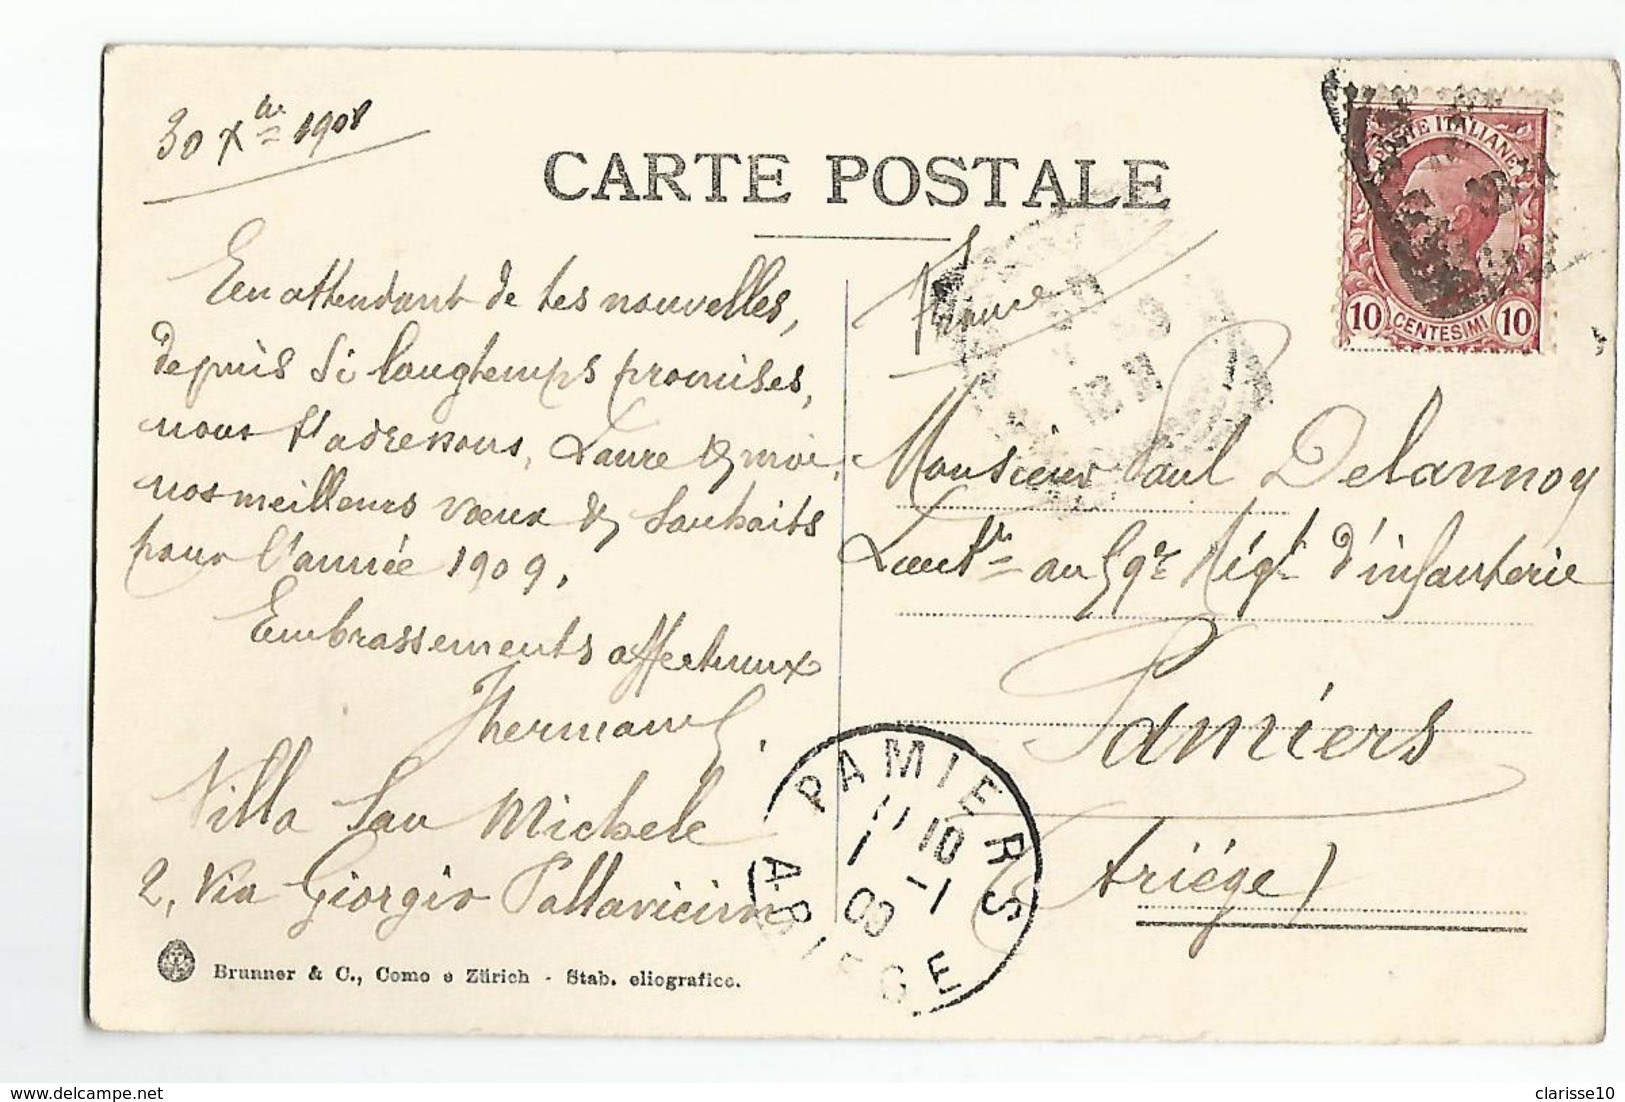 30 Xbre 1908
CARTE POSTALE
En attendant de tes nouvelles,
depuis si longtemps promises,
nous t'adressons, Laure & moi,
nos meilleurs vœux & souhaits
pour l'année 1909.
Embrassements affectueux
Villa San Michele
2, Via Giorgio Pallavicini
Brunner & C., Como e Zürich - Stab. eliografico.
France
POSTE ITALIANE
10 CENTESIMI 10
Monsieur Paul Delannoy
Lieutnt au 59e Régt d'infanterie
Pamiers
Ariége)
PAMIERS
11 10
1 - 1
09
ARIEGE
clarisse10